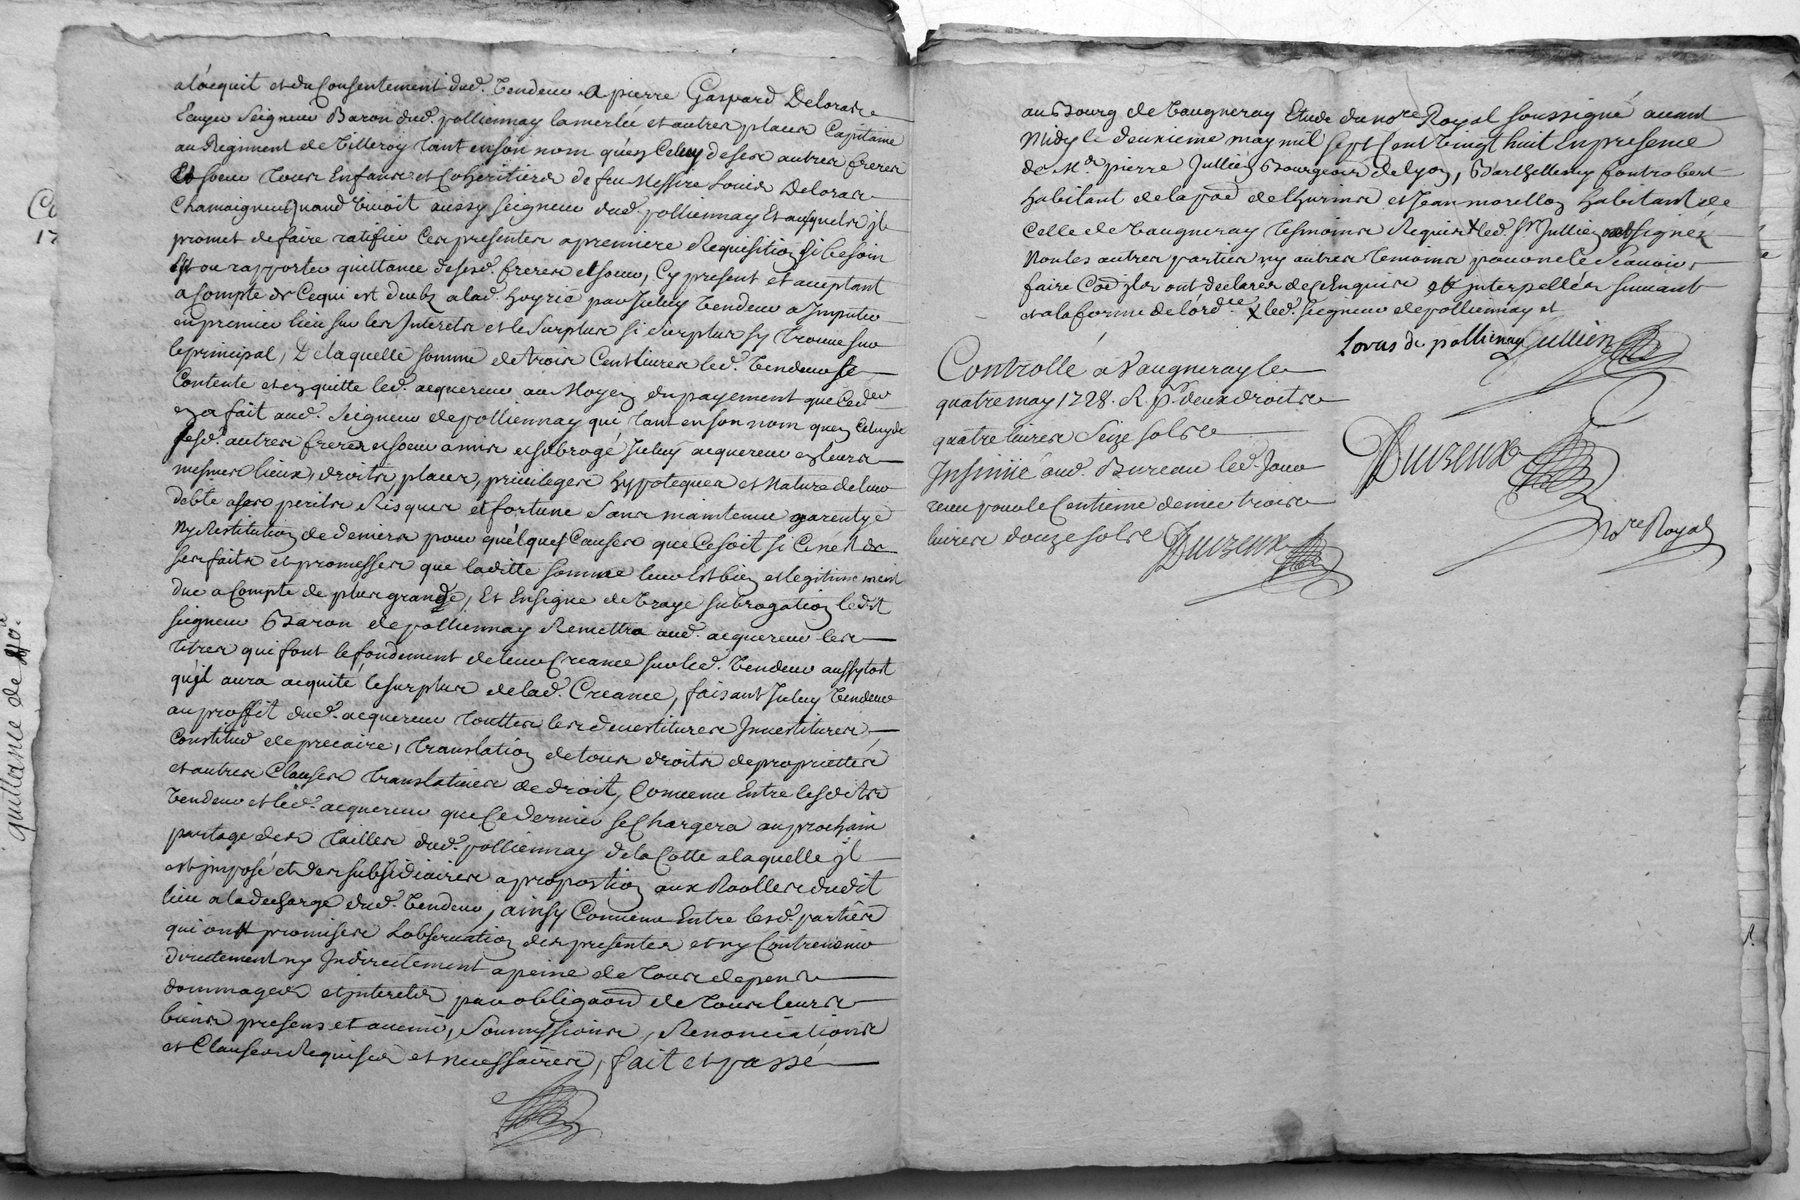 alacquit et du Consentement dud. vendeur A pierre Gaspard Deloras
Ecuyer Seigneur Baron dud. pollionnay lamerlée et autres places Capitaine
au Regiment de Villeroy tant en son nom qu'en Celuy de ses autres freres
Et soeur tous Enfans et Coheritiers de feu Messire Louis Deloras
Chamaigneu quand vivoit aussy seigneur dud. pollionnay Et ausquels jl
promet de faire ratifier Ces presentes a premiere Requisition si besoin
Est ou rapporter quittance de sesd. freres et soeur, Cy present et acceptant
a Compte de Cequi est deub a lad. hoyrie par Jceluy vendeur a Jmputer
en premier lieu sur les Jnterets et le Surplus si surplus sy trouve sur
le principal, De laquelle somme de trois Cent livres led. vendeur se
Contente et en quitte led. acquereur au Moyen du payement que Ced.
en a fait aud. Seigneur de pollionnay qui tant en son nom quen Celuy de
sesd. autres freres et soeur a mis et subrogé Jceluy acquereur en leurs
mesmes lieux, droits places, privileges hypoteques et Nature de leur
debte a ses perils Risques et fortune Sans maintenue garentye
Ny Restitution de deniers pour quelques Causes que Ce soit si Ce n'est de
ses faits et promesses que laditte somme leur Est bien et legitimement
due a Compte de plus grande, Et En signe de vraye subrogation ledit
seigneur Baron de pollionnay Remettra aud. acquereur les
titres qui font le fondement de leur Creance sur led. vendeur aussytost
qujl aura acquité le surplus de lad. Creance, faisant Jceluy vendeur
au proffit dud. acquereur touttes les devestitures Jnvestitures,
Constitut de precaire, translation de tous droits de proprietté
et autres Clauses translatives de droit, Convenu Entre lesdits
vendeur et led. acquereur que Ce dernier se Chargera au prochain
partage des tailles dud. pollionnay de la Cotte a laquelle jl
est jmposé et des subsidiaires a proportion aux Roolles dudit
lieu a la decharge dud. vendeur, ainsy Convenu Entre lesd. parties
qui ont promises L'observation des presentes et ny Contrevenir
directement ny Jndirectement a peine de tous depens
dommages et jnterets par obligaon de tous leurs
biens presens et avenir, Soumissions, Renonciations
et Clauses Requises et necessaires, fait et passé
au Bourg de Vaugneray Etude du no.re Royal soussigné avant
Midy le deuxieme may mil sept Cent vingt huit En presence
de M.r pierre Jullien Bourgeois de Lyon, Barthellemy fontrobert
habitant de la par. de Thurins et Jean morellon habitant de
Celle de Vaugneray tesmoins Requis X led. Sr. Jullien signez
Non les autres parties ny autres temoins pour ne le Scavoir
faire Co.e jls ont declarés de ce Enquis et jnterpellés suivant
et a la forme de lord.ce X led. seigneur de pollionnay et
Loras de pollionay Jullien
Controllé à Vaugneray le
quatre may 1728. R. p.r deux droits
quatre livres Seize sols
Jnsinué aud. Bureau led. Jour
reçu pour le Centieme denier trois
livres douze sols
no.re Royal
quittance de